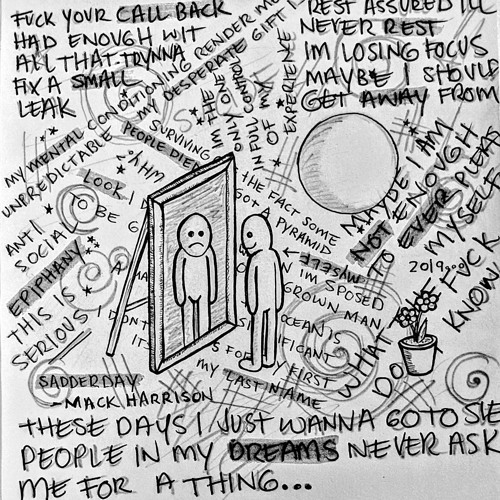 FUCK YOUR CALL BACK
HAD ENOUGH WIT
ALL THAT TRYNNA
FIX A SMALL
LEAK
REST ASSURED ILL
NEVER REST
IM LOSING FOCUS
MAYBE I SHOULD
GET AWAY FROM
MY MENTAL CONDITIONING RENDER ME
UNPREDICTABLE
MY DESPERATE GIFT I
SURVIVING
PEOPLE DIED
WHY?
IM THE
ONLY ONE
IN FULL CONTROL
OF MY
EXPERIENCE
LOOK I
BE
ANTI
SOCIAL
EPIPHANY
THIS IS
SERIOUS
THE FACT SOME
GOT A PYRAMID
MYSELF
IM SPOSED
GROWN MAN
DONT
OCEAN IS
MY FIRST
MY LAST NAME
MAYBE I AM
NOT ENOUGH
TO EVER PLEASE
MYSELF
2019
WHAT
DO
FUCK
KNOW
SADDERDAY
-MACK HARRISON
THESE DAYS I JUST WANNA GO TO SLE
PEOPLE IN MY DREAMS NEVER ASK
ME FOR A THING...